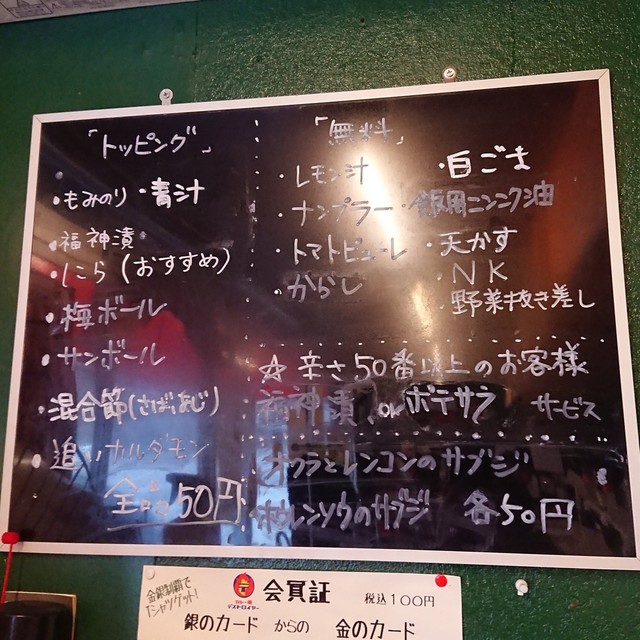 「トッピング」
・もみのり ・青汁
・福神漬
・にら (おすすめ)
・梅ボール
・サンボール
・混合節(さば、あじ)
・追いカルダモン
全品50円
「無料」
・レモン汁 ・白ごま
・ナンプラー ・飯用ニンニク油
・トマトピューレ ・天かす
・からし ・NK
・野菜抜き差し
☆辛さ50番以上のお客様
福神漬 or ポテサラ サービス
・オクラとレンコンのサブジ
・ホウレンソウのサブジ 各50円
金銀制覇で
Tシャツゲット!
デストロイヤー
会員証 税込100円
銀のカード からの 金のカード